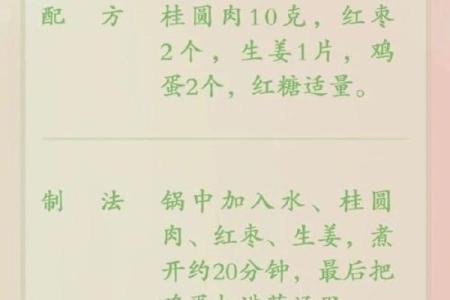 配 方 桂圆肉10克，红枣
2个，生姜1片，鸡
蛋2个，红糖适量。
制 法 锅中加入水、桂圆
肉、红枣、生姜，煮
开约20分钟，最后把